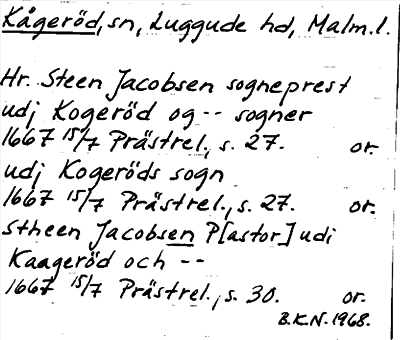 Kågeröd, sn, Luggude hd, Malm. l.
Hr. Steen Jacobsen sogneprest
udj Kogeröd og -- sogner
1667 15/7 Prästrel., s. 27. or.
udj Kogeröds sogn
1667 15/7 Prästrel., s. 27. or.
Stheen Jacobsen P[astor] udi
Kaageröd och --
1667 15/7 Prästrel., s. 30. or.
B.K.N. 1968.